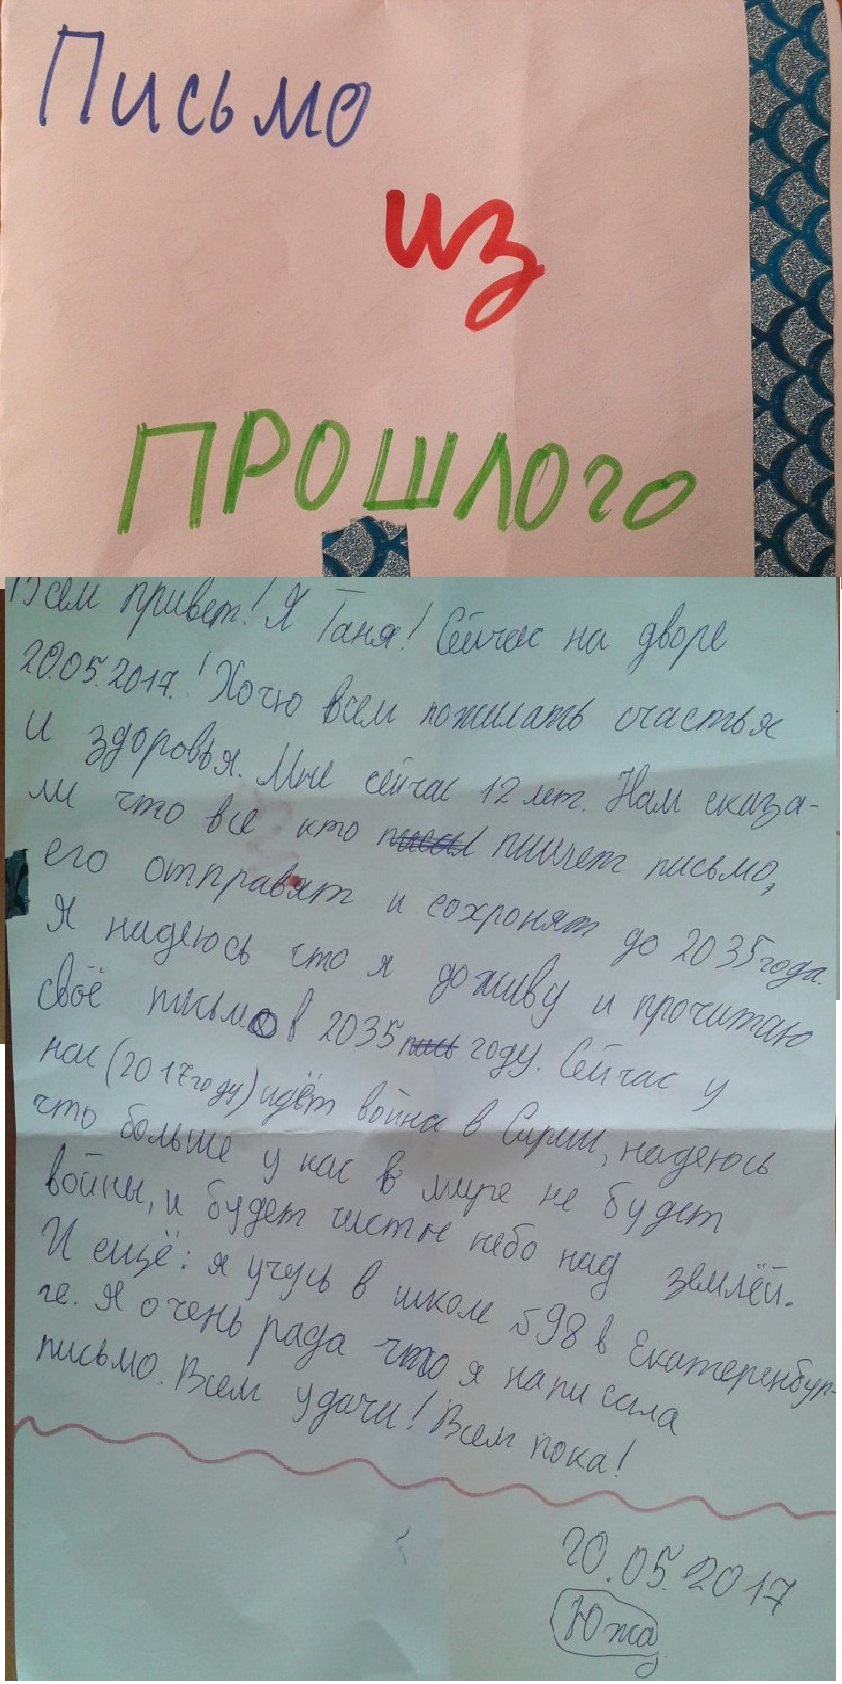 Письмо
из
ПРОШЛОГО
Всем привет! Я Таня! Сейчас на дворе
20.05.2017.! Хочю всем пожилать счастья
и здоровья. Мне сейчас 12 лет. Нам сказа-
ли что все кто писал пишет письмо,
его отправят и сохронят до 2035 года.
Я надеюсь что я доживу и прочитаю
своё письмо в 2035 пись году. Сейчас у
нас (2017 году) идёт война в Сирии, надеюсь
что больше у нас в мире не будет
войны, и будет чистое небо над землёй.
И ещё: я учусь в школе №98 в Екатеренбур-
ге. Я очень рада что я написала
письмо. Всем удачи! Всем пока!
20.05.2017